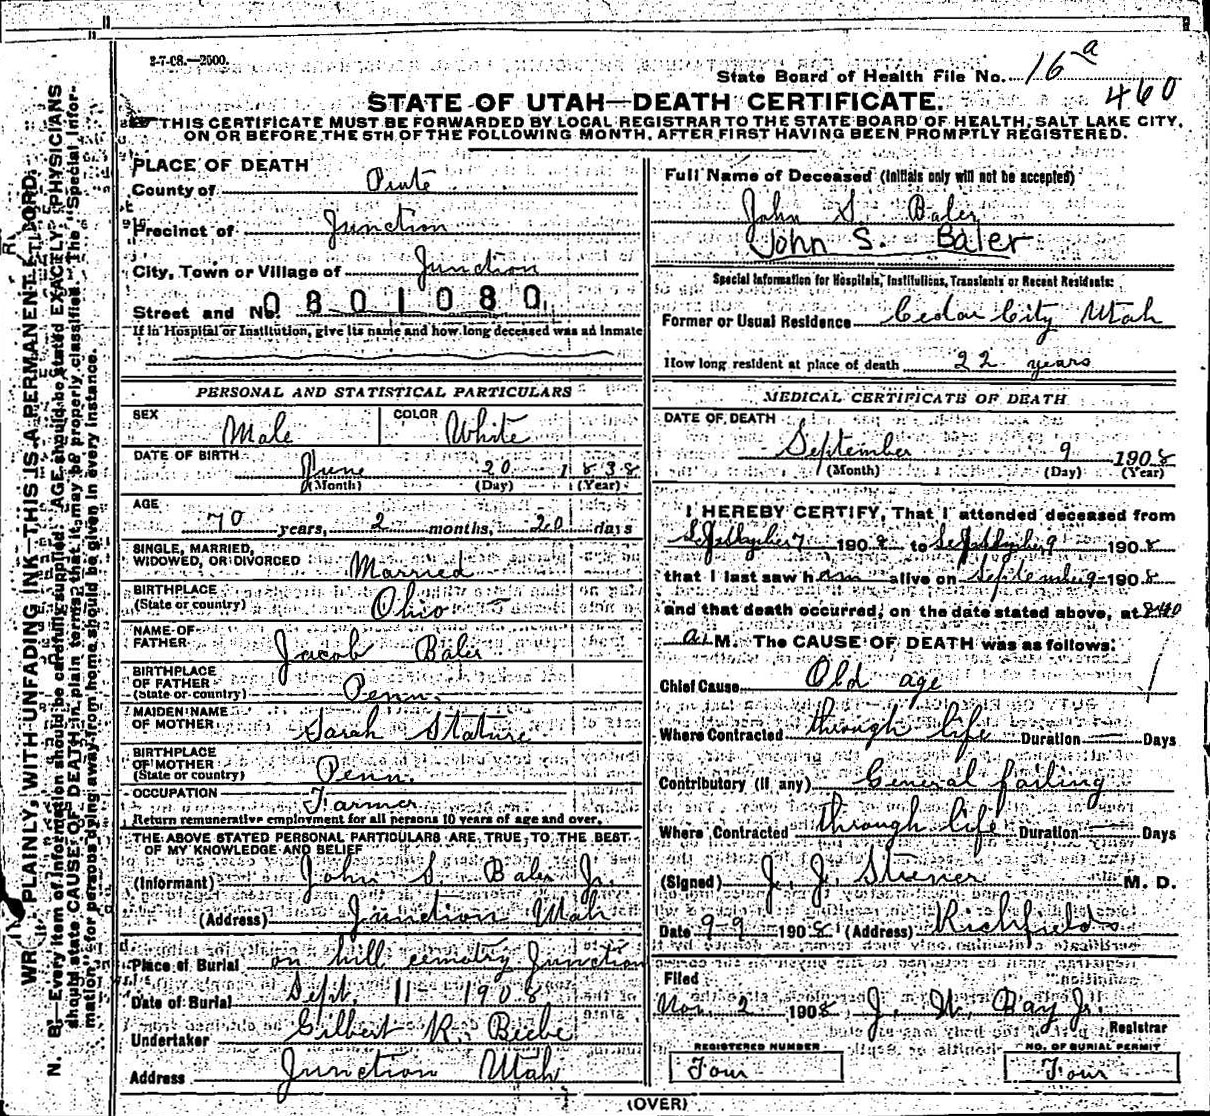 3-7-08.—2500.
State Board of Health File No. 16 a
460
STATE OF UTAH—DEATH CERTIFICATE.
THIS CERTIFICATE MUST BE FORWARDED BY LOCAL REGISTRAR TO THE STATE BOARD OF HEALTH, SALT LAKE CITY,
ON OR BEFORE THE 5TH OF THE FOLLOWING MONTH, AFTER FIRST HAVING BEEN PROMPTLY REGISTERED.
PLACE OF DEATH
County of Piute
Precinct of Junction
City, Town or Village of Junction
Street and No. 0801080
If in Hospital or Institution, give its name and how long deceased was an inmate
PERSONAL AND STATISTICAL PARTICULARS
SEX Male
COLOR White
DATE OF BIRTH
June 20 1838
(Month) (Day) (Year)
AGE
70 years, 2 months, 20 days
SINGLE, MARRIED,
WIDOWED, OR DIVORCED Married
BIRTHPLACE
(State or country) Ohio
NAME OF
FATHER Jacob Baler
BIRTHPLACE
OF FATHER
(State or country) Penn.
MAIDEN NAME
OF MOTHER Sarah Stature
BIRTHPLACE
OF MOTHER
(State or country) Penn.
OCCUPATION Farmer
Return remunerative employment for all persons 10 years of age and over.
THE ABOVE STATED PERSONAL PARTICULARS ARE TRUE TO THE BEST
OF MY KNOWLEDGE AND BELIEF
(Informant) John S. Baler Jr.
(Address) Junction Utah
Place of Burial on hill cemetry Junction
Date of Burial Sept. 11 1908
Undertaker Gilbert R. Beebe
Address Junction Utah
Full Name of Deceased (Initials only will not be accepted)
John S. Baler
John S. Baler
Special Information for Hospitals, Institutions, Transients or Recent Residents:
Former or Usual Residence Cedar City Utah
How long resident at place of death 22 years
MEDICAL CERTIFICATE OF DEATH
DATE OF DEATH
September 9 1908
(Month) (Day) (Year)
I HEREBY CERTIFY, That I attended deceased from
September 7 1908 to September 9 1908
that I last saw him alive on September 9 1908
and that death occurred, on the date stated above, at 8:40
a. M. The CAUSE OF DEATH was as follows:
Chief Cause Old age
Where Contracted through life Duration — Days
Contributory (if any) General failing
Where Contracted through life Duration — Days
(Signed) J. J. Steiner M. D.
Date 9-9 1908 (Address) Richfield
Filed
Nov. 2 1908 J. W. Bay Jr.
Registrar
REGISTERED NUMBER
Four
NO. OF BURIAL PERMIT
Four
(OVER)
PLAINLY, WITH UNFADING INK—THIS IS A PERMANENT
N. B.—Every item of information should be carefully supplied. AGE should be stated EXACTLY. PHYSICIANS
should state CAUSE OF DEATH in plain terms, that it may be properly classified. The "Special Infor-
mation" for persons dying away from home should be given in every instance.